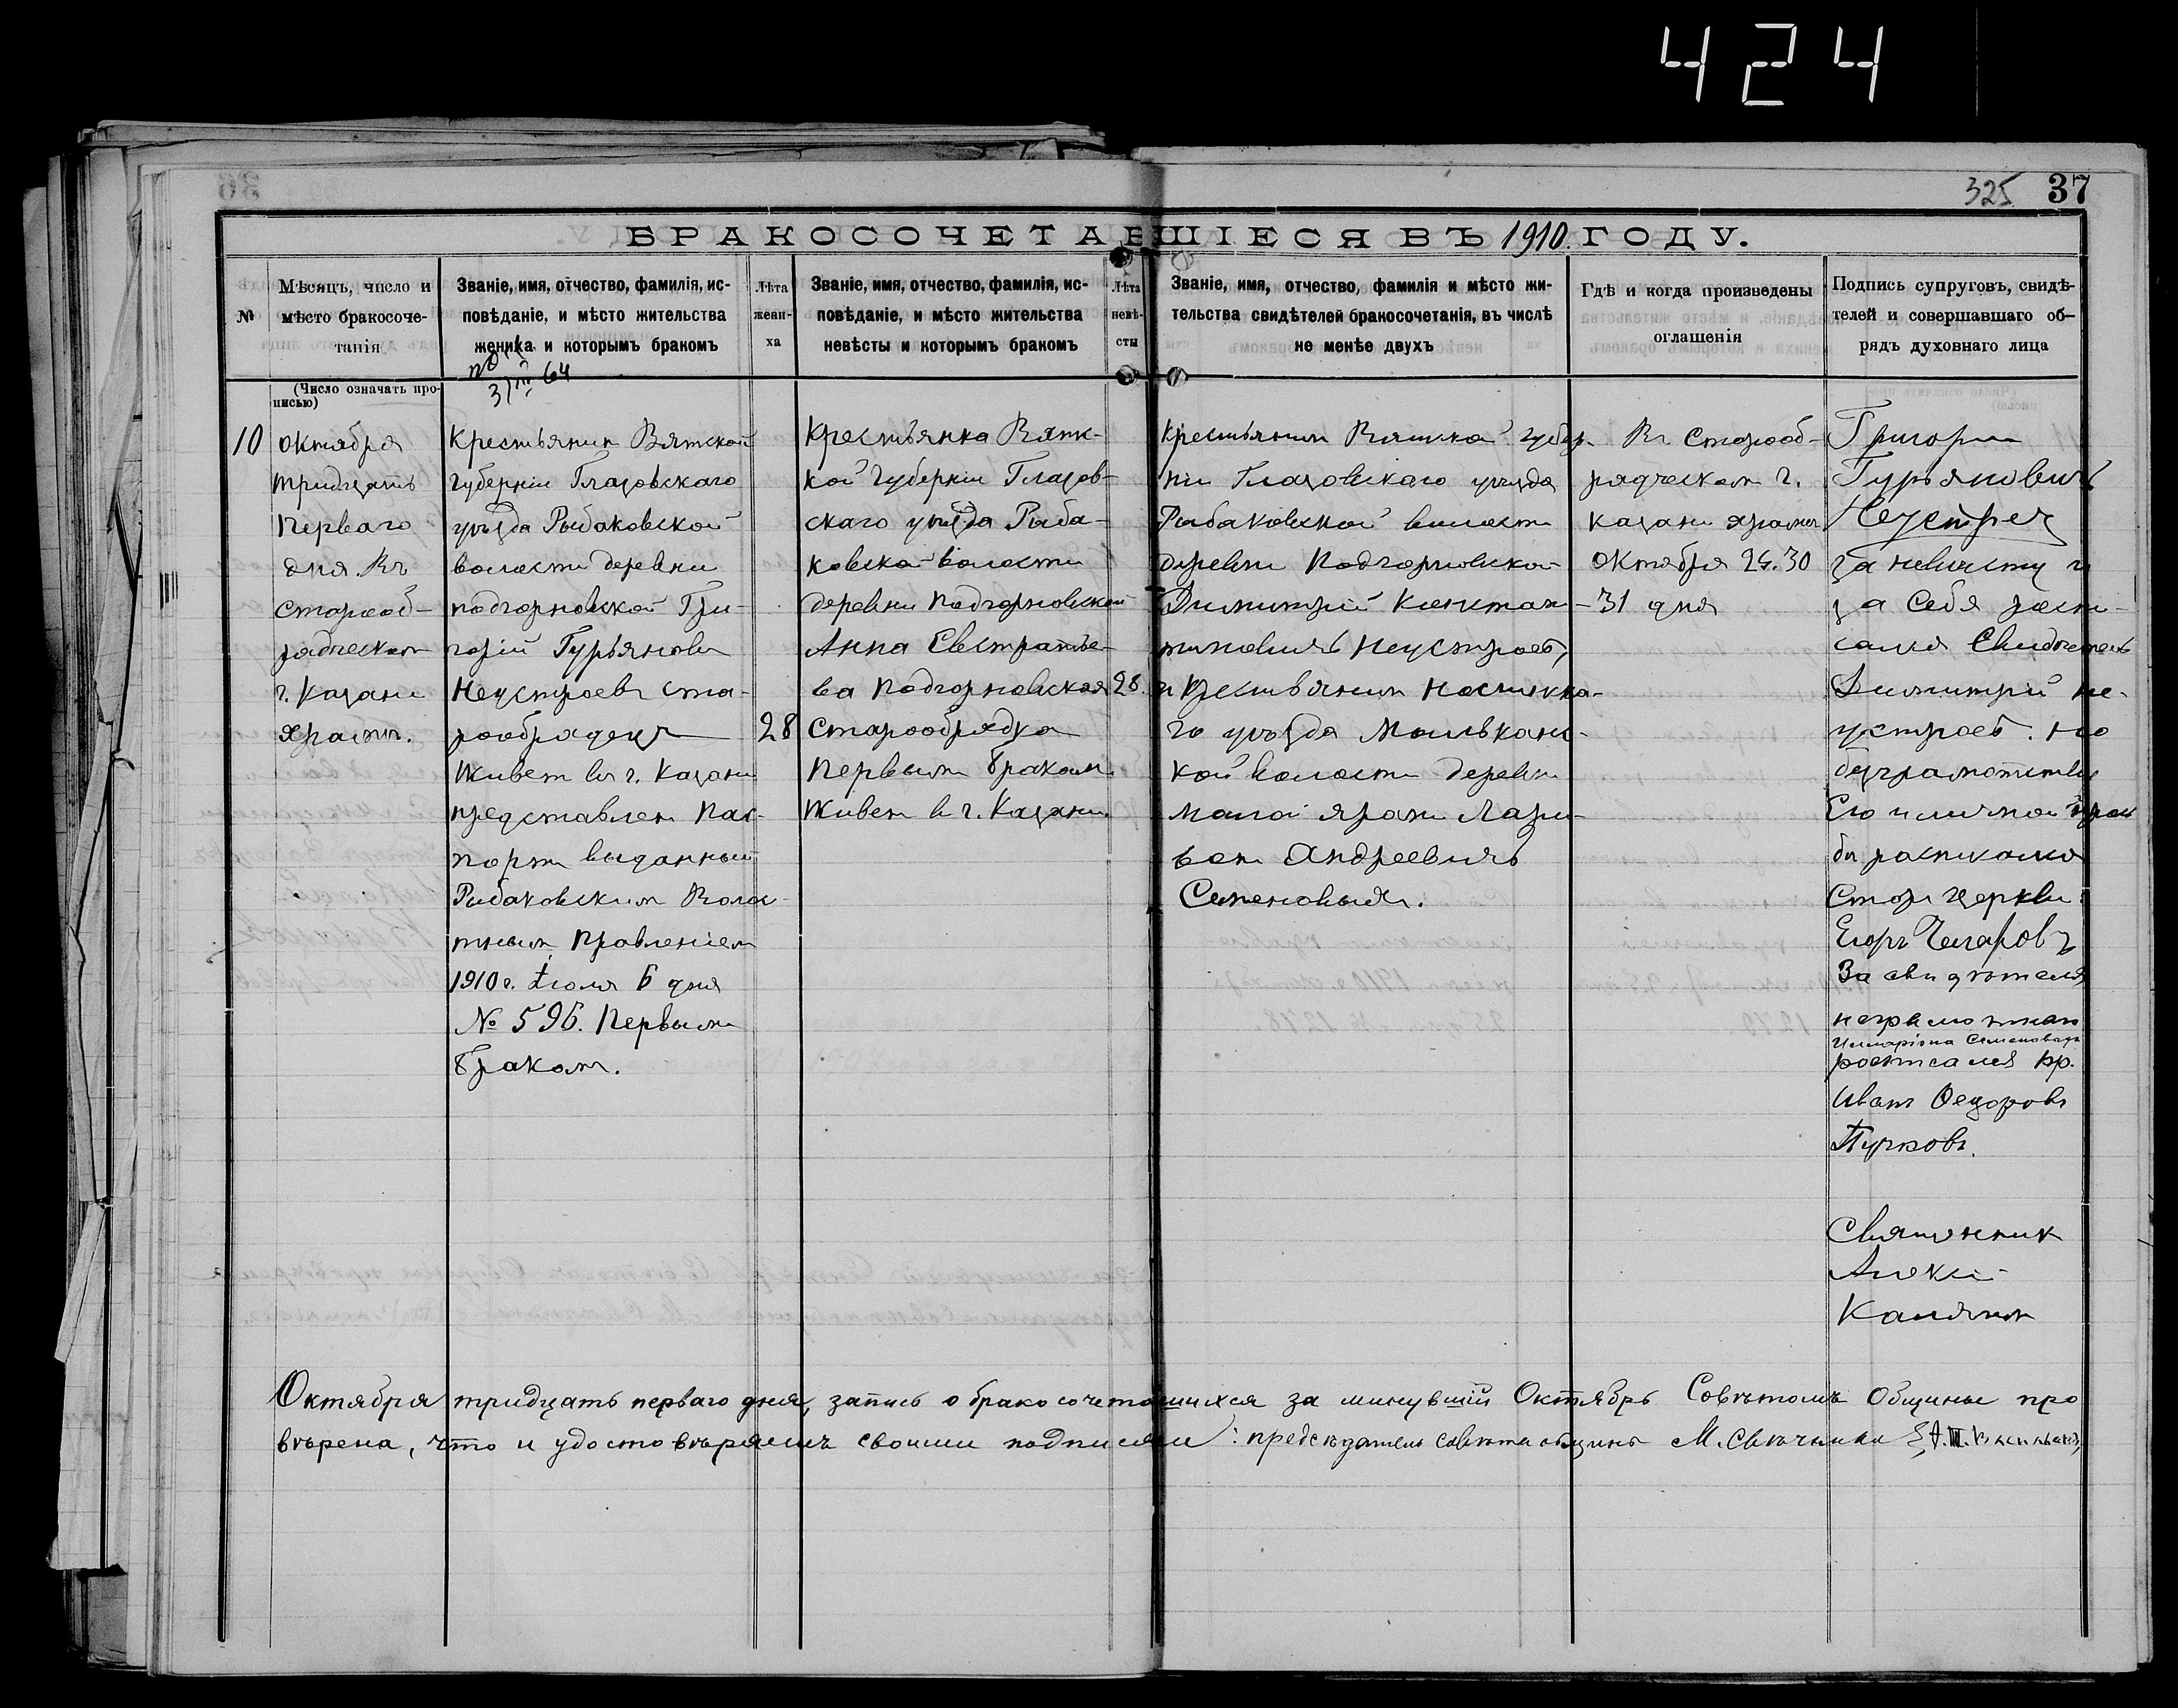 424
325 37
БРАКОСОЧЕТАВШІЕСЯ ВЪ 1910. ГОДУ.
№
Мѣсяцъ, число и
мѣсто бракосоче-
танія
Званіе, имя, отчество, фамилія, ис-
повѣданіе, и мѣсто жительства
жениха и которымъ бракомъ
Лѣта
жени-
ха
Званіе, имя, отчество, фамилія, ис-
повѣданіе, и мѣсто жительства
невѣсты и которымъ бракомъ
Лѣта
невѣ-
сты
Званіе, имя, отчество, фамилія и мѣсто жи-
тельства свидѣтелей бракосочетанія, въ числѣ
не менѣе двухъ
Гдѣ и когда произведены
оглашенія
Подпись супруговъ, свидѣ-
телей и совершавшаго об-
рядъ духовнаго лица
(Число означать про-
писью)
10
октября
тридцать
перваго
дня Въ
старооб-
рядческом
г. Казани
храмѣ.
Крестьянин Вятской
губерніи Глазовскаго
уѣзда Рыбаковской
волости деревни
подгорновской Гри-
горій Гурьянов
Неустроевъ ста-
рообрядец
Живет в г. Казани
представлен пас-
порт выданный
Рыбаковским Волос-
тным Правленіем
1910 г. Іюля 6 дня
№ 596. Первым
браком.
28
Крестьянка Вятс-
кой губерніи Глазов-
скаго уѣзда Рыба-
ковской волости
деревни Подгорновской
Анна Евстратье-
ва Подгорновская
старообрядка
Первым браком.
Живет в г. Казани.
28.
Крестьянин Вятской губер-
ніи Глазовскаго уѣзда
Рыбаковской волости
деревни Подгорновской
Димитрий Констан-
тиновичъ Неустроев,
и Крестьянин
го уѣзда
кой волости деревни
малой
Андреевичъ
Семеновых.
В Старооб-
рядческом г.
Казани храме
октября 24. 30
31 дня
Григории
Гурьяновичъ
за невесту и
за себя роспи-
сался Свидетель
Димитрий не-
устроев. по
безграмотству
Его и личной прось
бы росписался
церкви
Егоръ
За свидѣтеля
неграмотнаго
Семеновых
росписался кр.
Иван Федоров
Пучков.
Священник
Алексѣй
Калягин
Октября тридцать перваго дня, запись о бракосочетавшихся за минувшій Октябрь Совѣтомъ Общины про
вѣрена, что и удостовѣряемъ своими подписями: председатель совѣта общины М.